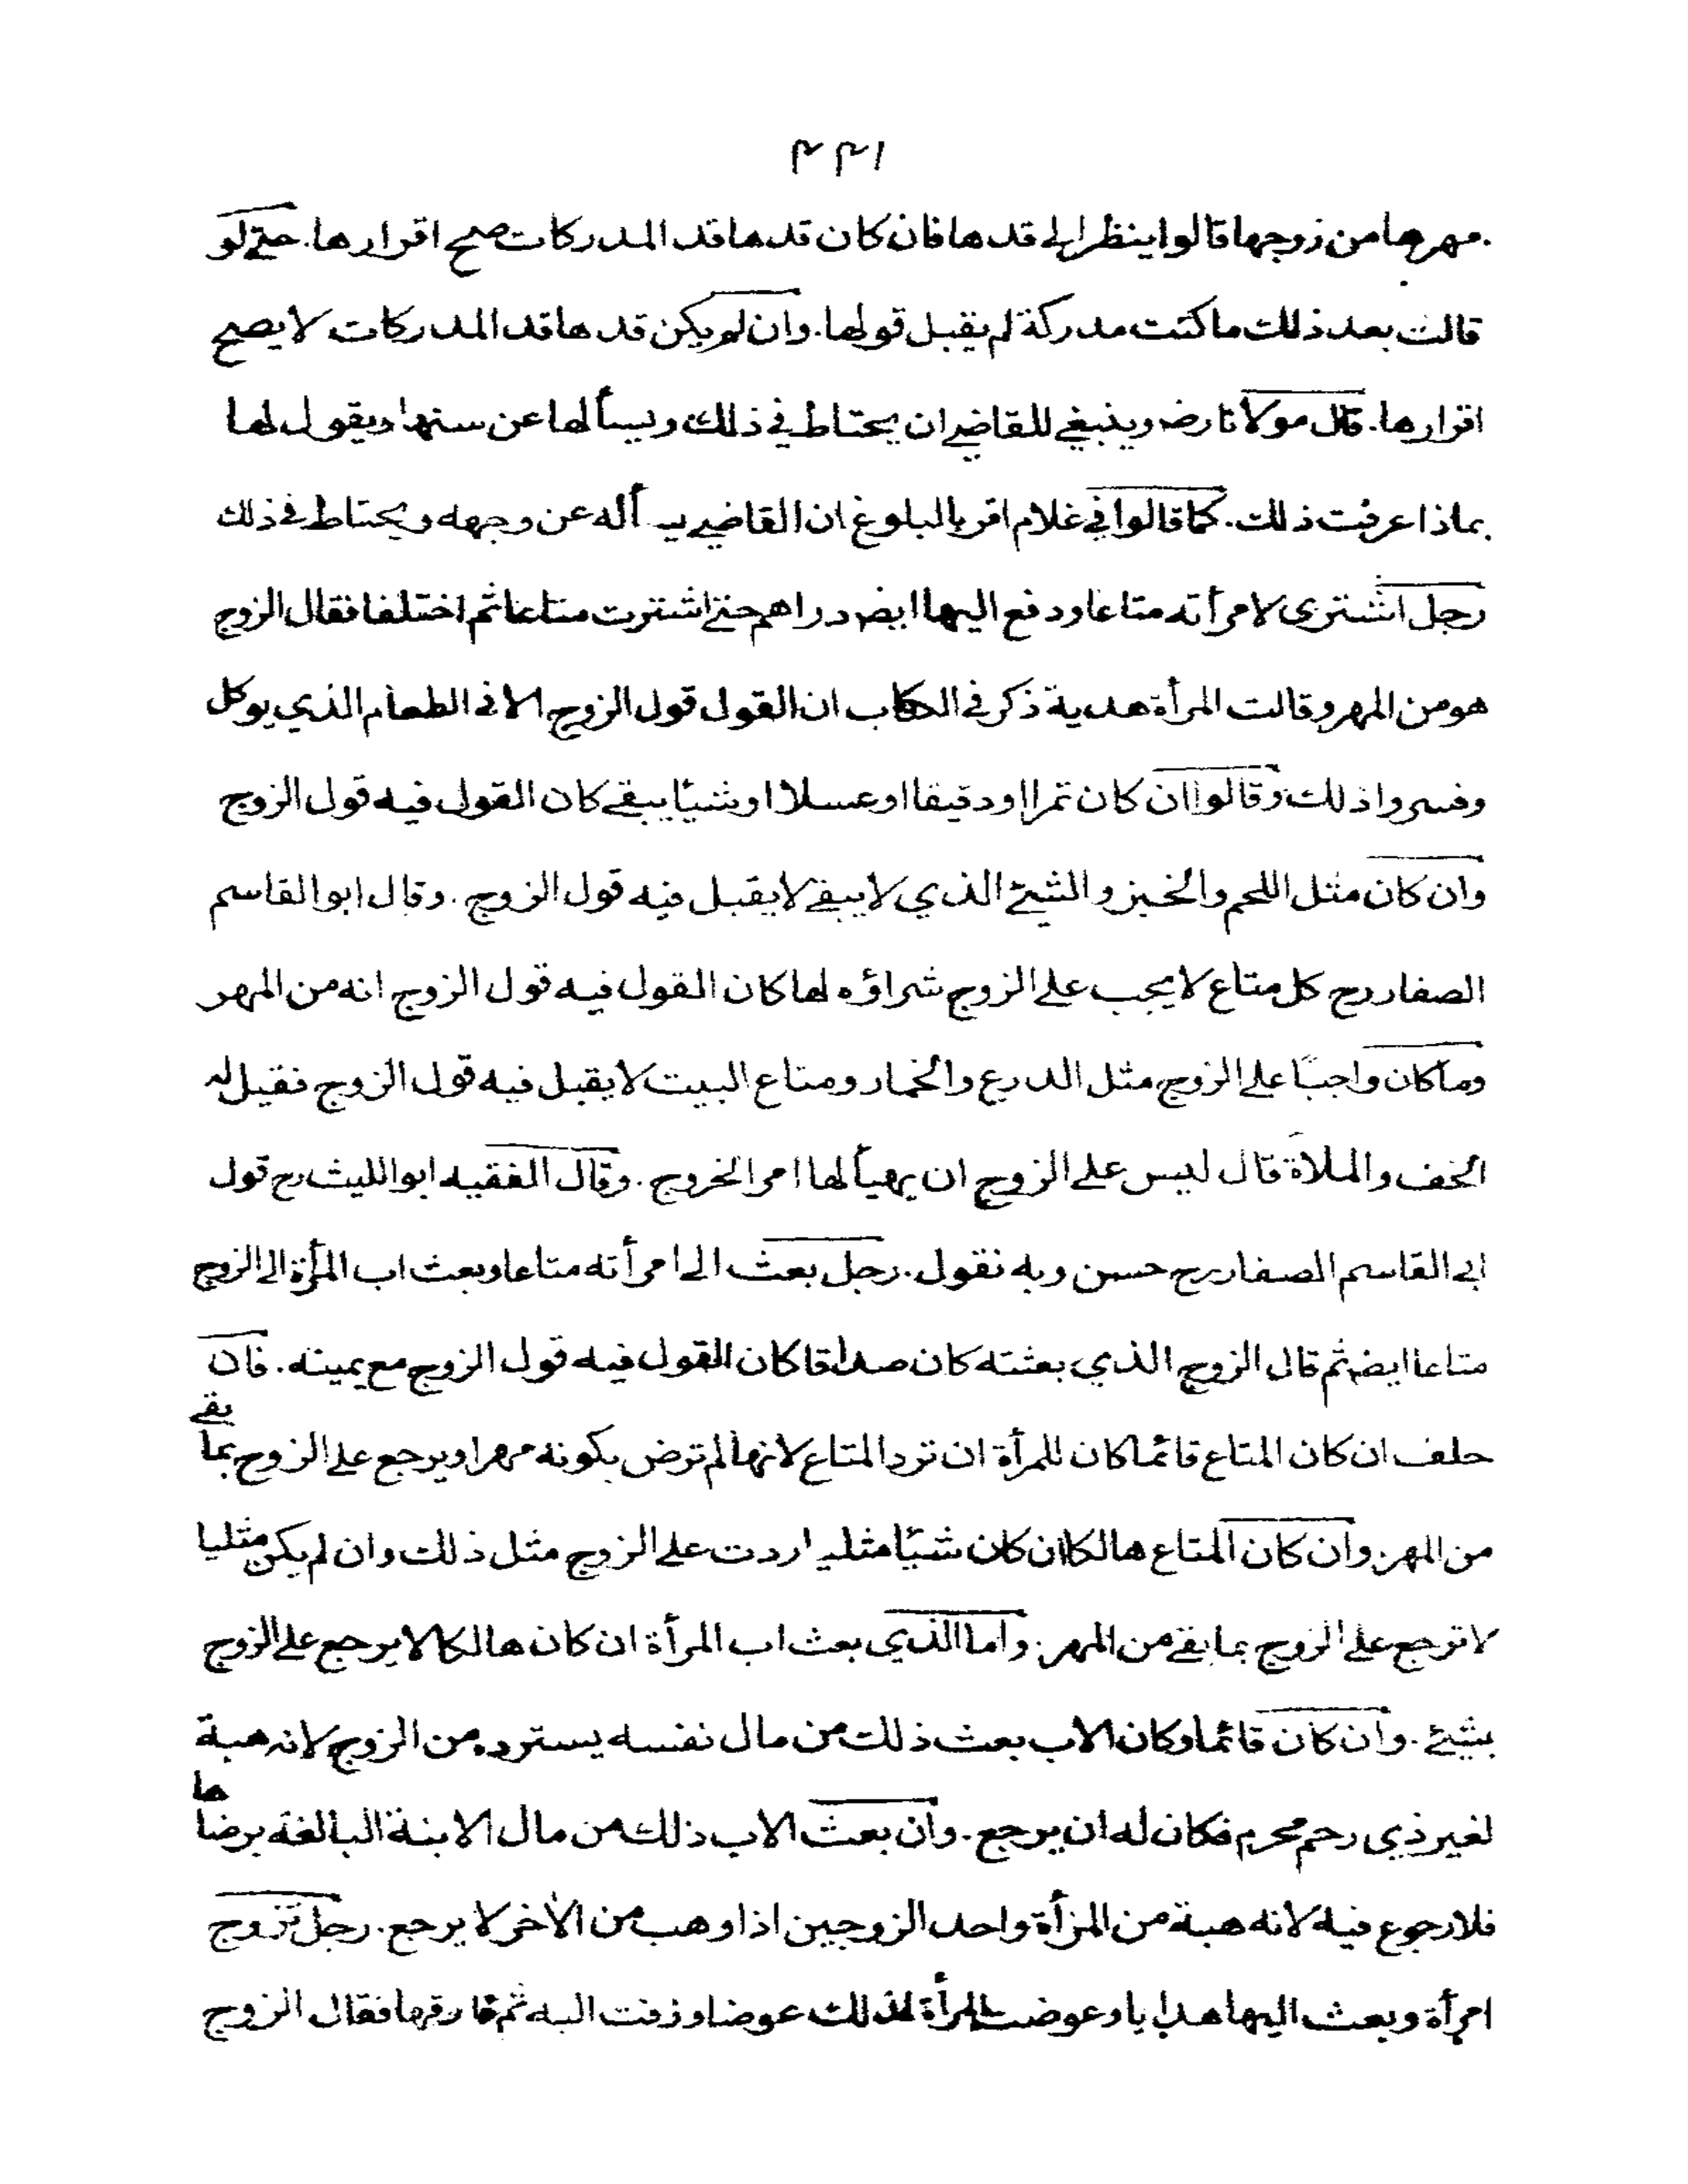 ٤٣١
مهرها من زوجها قالوا ينظر الى قدها فان كان قدها قد المدركات صح اقرارها. حتى لو
قالت بعد ذلك ما كنت مدركة لم يقبل قولها. وان لم يكن قدها قد المدركات لا يصح
اقرارها. قال مولانا رض وينبغي للقاضي ان يحتاط في ذلك ويسألها عن سنها ويقول لها
بماذا عرفت ذلك. كما قالوا في غلام اقر بالبلوغ ان القاضي يسأله عن وجهه ويحتاط في ذلك
رجل اشترى لامرأته متاعا ودفع اليها ايضا دراهم حتى اشترت متاعا ثم اختلفا فقال الزوج
هو من المهر وقالت المرأة هدية ذكر في الكتاب ان القول قول الزوج الا في الطعام الذي يوكل
وفسروا ذلك وقالوا ان كان تمرا او دقيقا او عسلا او شيئا يبقى كان القول فيه قول الزوج
وان كان مثل اللحم والخبز والشيئ الذي لا يبقى لا يقبل فيه قول الزوج. وقال ابو القاسم
الصفار رح كل متاع لا يجب على الزوج شراؤه لها كان القول فيه قول الزوج انه من المهر
وما كان واجبا على الزوج مثل الدرع والخمار ومتاع البيت لا يقبل فيه قول الزوج فقيل له
الخف والملاة قال ليس على الزوج ان يهيأ لها امر الخروج. وقال الفقيه ابو الليث رح قول
ابي القاسم الصفار رح حسن وبه نقول. رجل بعث الى امرأته متاعا وبعث اب المرأة الى الزوج
متاعا ايضا ثم قال الزوج الذي بعثته كان صداقا كان القول فيه قول الزوج مع يمينه. فان
حلف ان كان المتاع قائما كان للمرأة ان ترد المتاع لانها لم ترض بكونه مهرا ويرجع على الزوج بما بقي
من المهر. وان كان المتاع هالكا ان كان شيئا مثليا ردت على الزوج مثل ذلك وان لم يكن مثليا
لا ترجع على الزوج بما بقي من المهر. واما الذي بعث اب المرأة ان كان هالكا لا يرجع على الزوج
بشيئ. وان كان قائما وكان الاب بعث ذلك من مال نفسه يسترده من الزوج لانه هبة
لغير ذي رحم محرم فكان له ان يرجع. وان بعث الاب ذلك من مال الابنة البالغة برضاها
فلا رجوع فيه لانه هبة من المرأة واحد الزوجين اذا وهب من الآخر لا يرجع. رجل تزوج
امرأة وبعث اليها هدايا وعوضت المرأة لذلك عوضا وزفت اليه ثم فارقها فقال الزوج